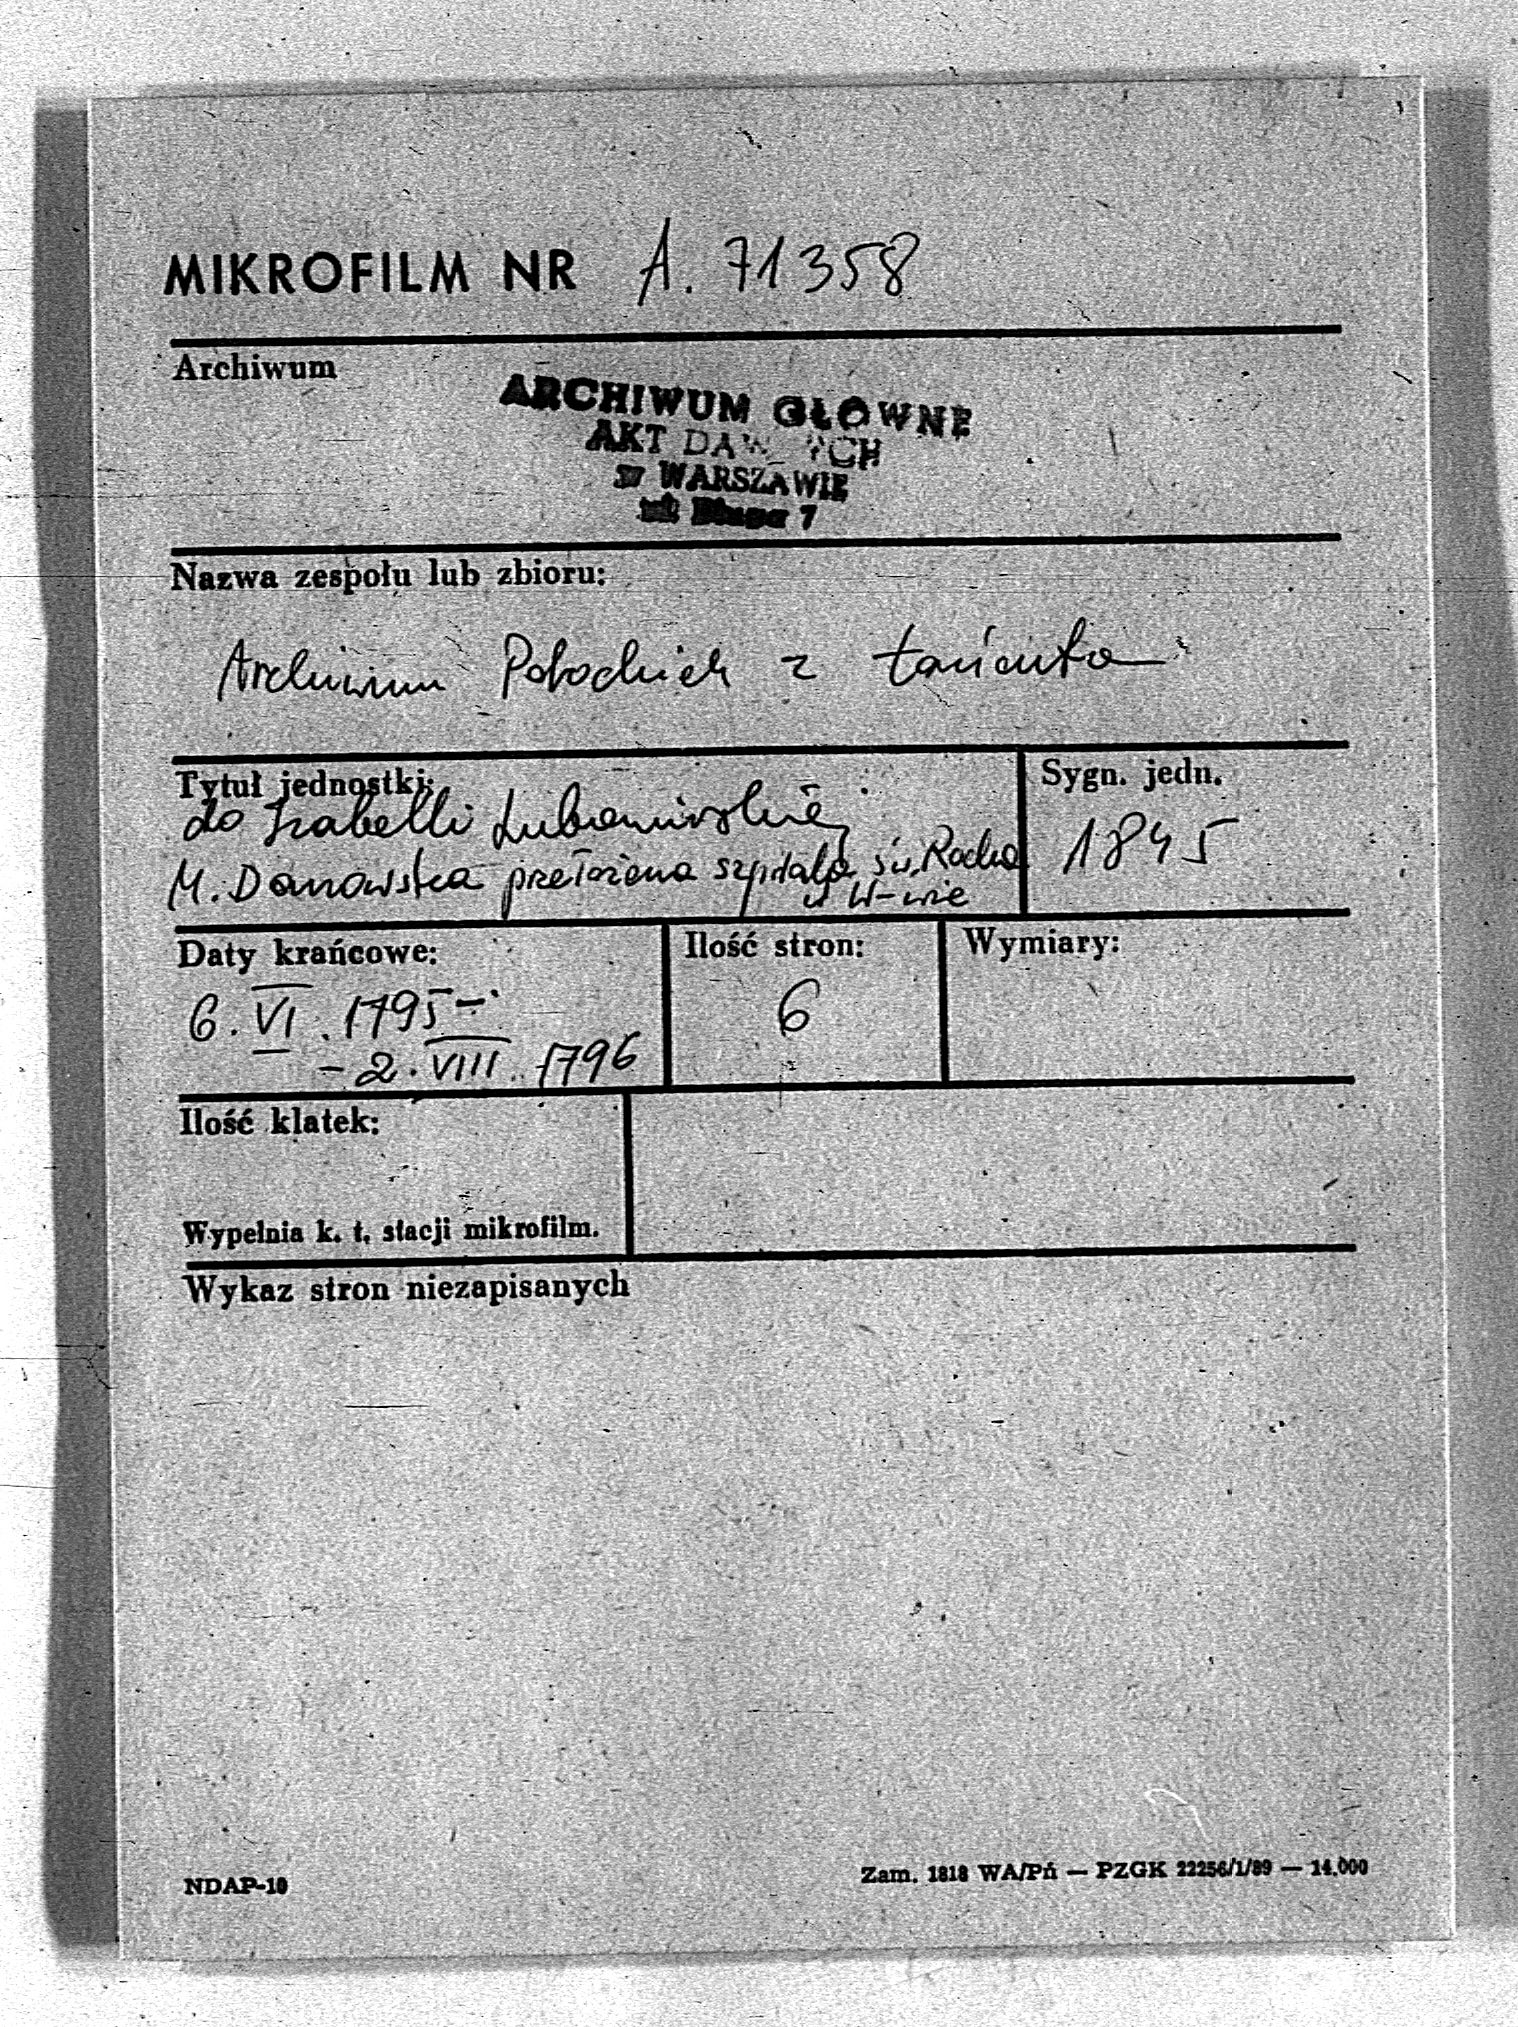 MIKROFILM NR A. 71358
Archiwum
ARCHIWUM GŁÓWNE
AKT DAWNYCH
w WARSZAWIE
ul. Długa 7
Nazwa zespołu lub zbioru:
Archiwum Potockich z Łańcuta
Tytuł jednostki:
do Izabelli Lubomirskiej
M. Danowska przełożona szpitala św. Rocha
w W-wie
Sygn. jedn.
1845
Daty krańcowe:
6. VI. 1795 -
- 2. VIII. 1796
Ilość stron:
6
Wymiary:
Ilość klatek:
Wypełnia k. t. stacji mikrofilm.
Wykaz stron niezapisanych
NDAP-10
Zam. 1818 WA/Pń — PZGK 22256/1/89 — 14.000